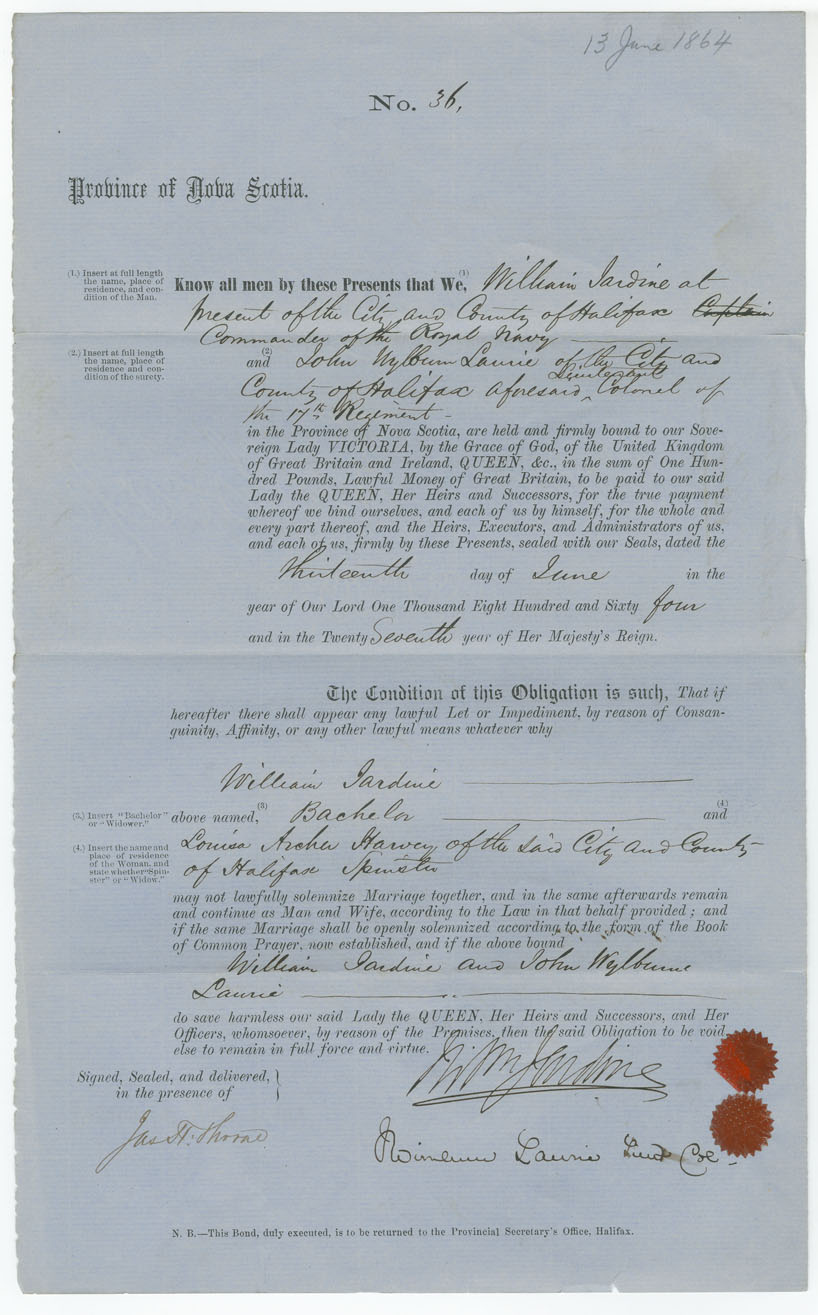 13 June 1864
No. 36,
Province of Nova Scotia.
(1.) Insert at full length
the name, place of
residence, and con-
dition of the Man.
Know all men by these Presents that We,(1) William Jardine at
present of the City and County of Halifax Captain
Commander of the Royal Navy
(2.) Insert at full length
the name, place of
residence and con-
dition of the surety.
and (2) John Wylburn Laurie of the City and
County of Halifax aforesaid, Lieutenant Colonel of
the 17th Regiment -
in the Province of Nova Scotia, are held and firmly bound to our Sove-
reign Lady VICTORIA, by the Grace of God, of the United Kingdom
of Great Britain and Ireland, QUEEN, &c., in the sum of One Hun-
dred Pounds, Lawful Money of Great Britain, to be paid to our said
Lady the QUEEN, Her Heirs and Successors, for the true payment
whereof we bind ourselves, and each of us by himself, for the whole and
every part thereof, and the Heirs, Executors, and Administrators of us,
and each of us, firmly by these Presents, sealed with our Seals, dated the
thirteenth day of June in the
year of Our Lord One Thousand Eight Hundred and Sixty four
and in the Twenty Seventh year of Her Majesty's Reign.
The Condition of this Obligation is such, That if
hereafter there shall appear any lawful Let or Impediment, by reason of Consan-
guinity, Affinity, or any other lawful means whatever why
William Jardine
(3.) Insert "Bachelor"
or "Widower."
above named,(3) Bachelor and (4)
(4.) Insert the name and
place of residence
of the Woman, and
state whether "Spin-
ster" or "Widow."
Louisa Archer Harvey of the said City and County
of Halifax Spinster
may not lawfully solemnize Marriage together, and in the same afterwards remain
and continue as Man and Wife, according to the Law in that behalf provided; and
if the same Marriage shall be openly solemnized according to the form of the Book
of Common Prayer, now established, and if the above bound
William Jardine and John Wylburne
Laurie
do save harmless our said Lady the QUEEN, Her Heirs and Successors, and Her
Officers, whomsoever, by reason of the Premises, then the said Obligation to be void,
else to remain in full force and virtue.
Signed, Sealed, and delivered,
in the presence of
Wm Jardine
Jas H. Thorne
Laurie Lieut Col -
N. B.—This Bond, duly executed, is to be returned to the Provincial Secretary's Office, Halifax.